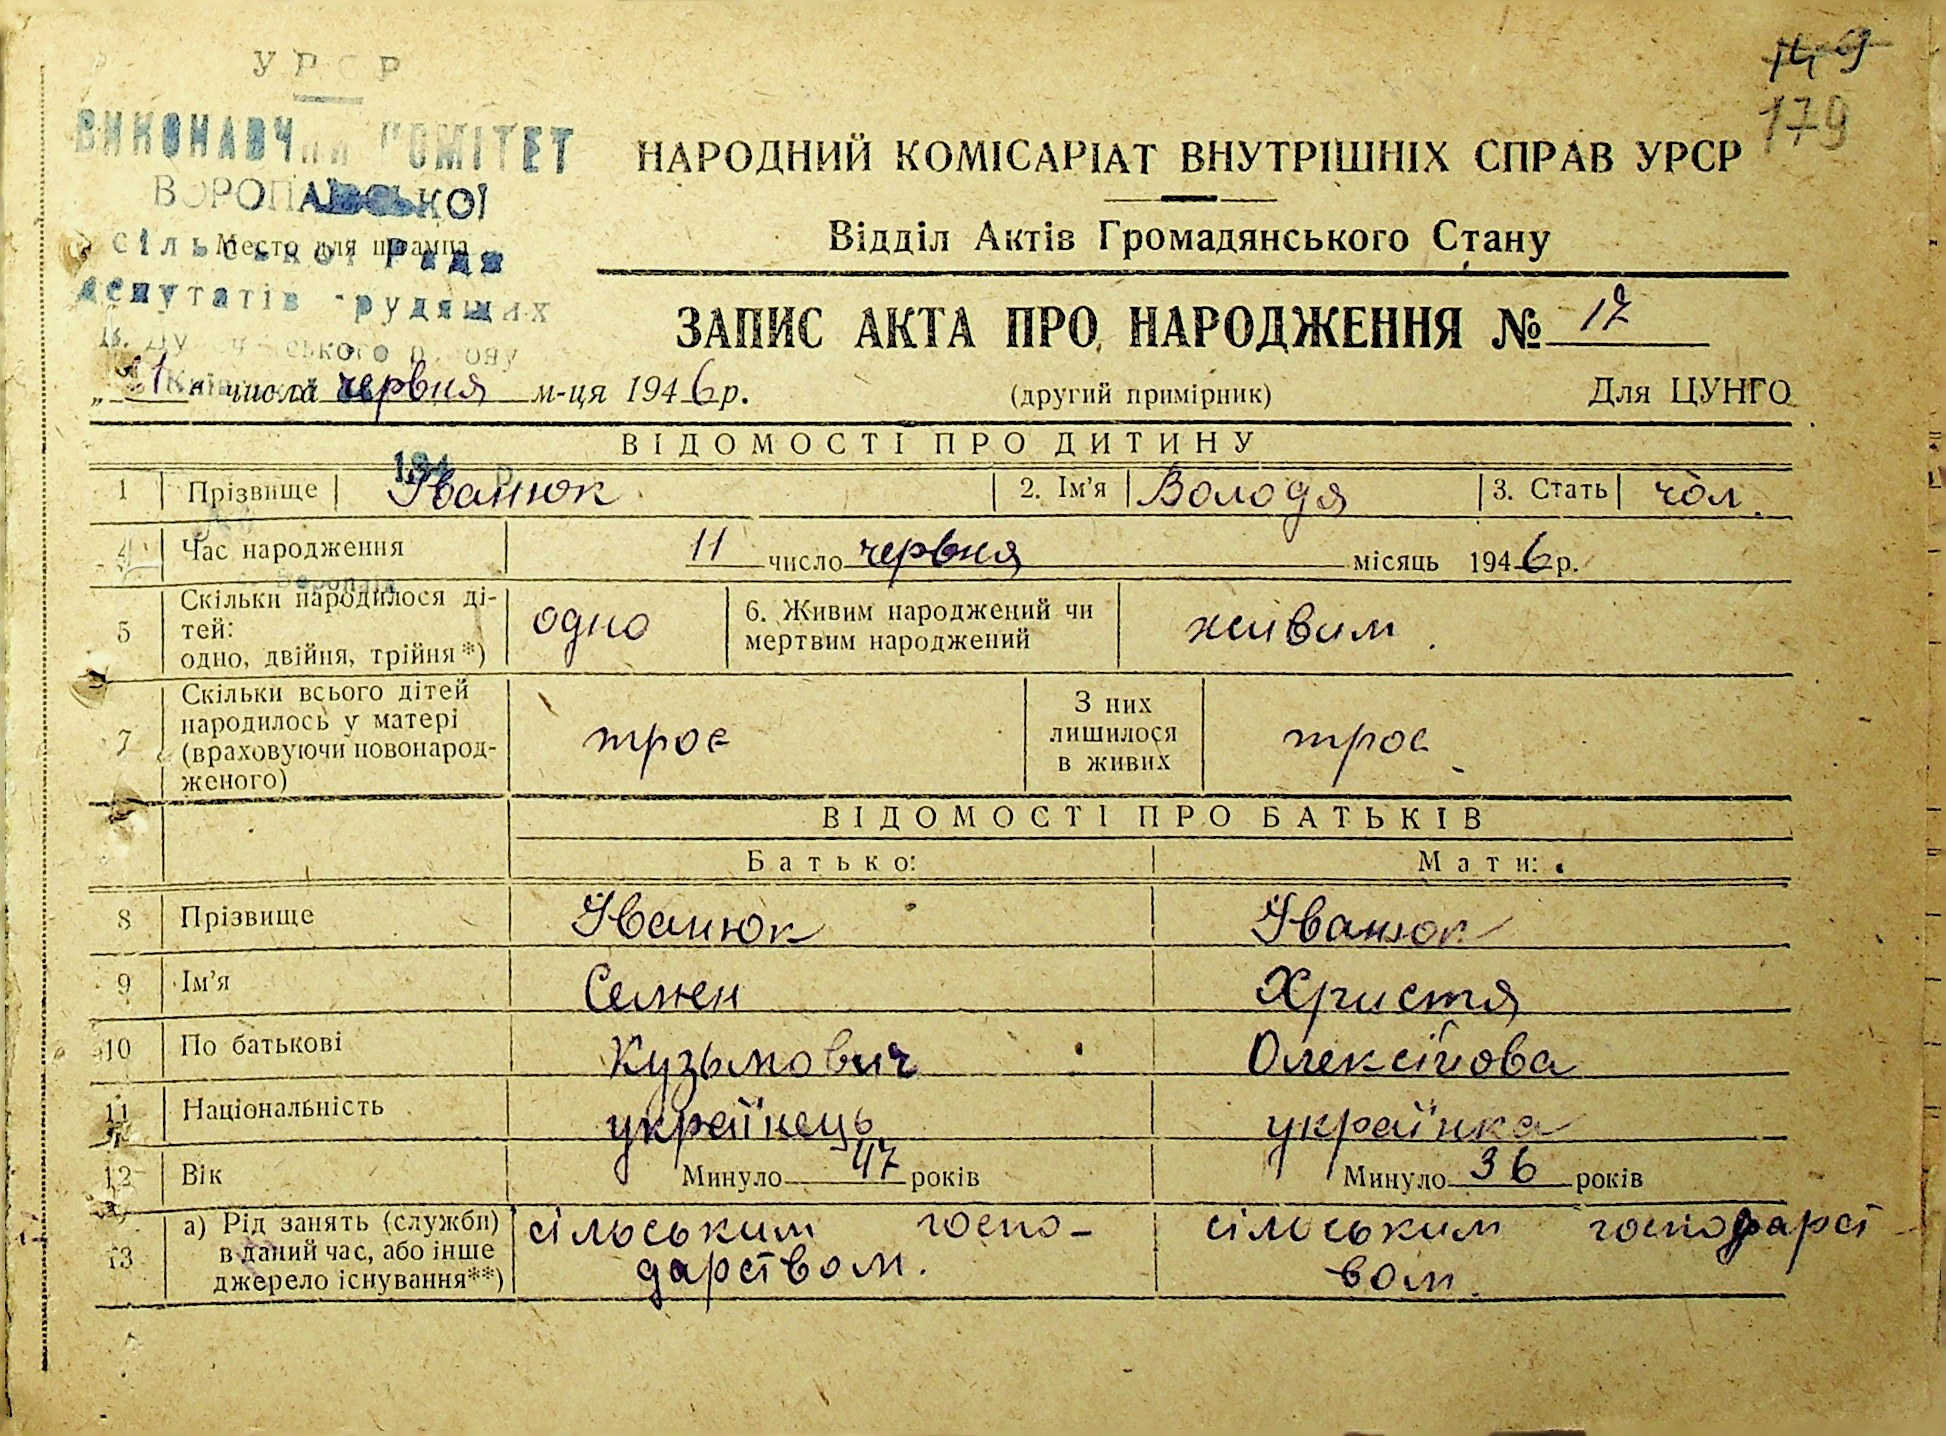 149
179
УРСР
ВИКОНАВЧИЙ КОМІТЕТ
ВОРОПАЇВСЬКОЇ
сільської Ради
Место для штампа
депутатів трудящих
НАРОДНИЙ КОМІСАРІАТ ВНУТРІШНІХ СПРАВ УРСР
Відділ Актів Громадянського Стану
ЗАПИС АКТА ПРО НАРОДЖЕННЯ № 17
числа червня м-ця 1946 р.
(другий примірник)
Для ЦУНГО
ВІДОМОСТІ ПРО ДИТИНУ
1 Прізвище Іванюк 2. Ім'я Володя 3. Стать чол.
4 Час народження 11 число червня місяць 1946 р.
5 Скільки народилося ді-
тей:
одно, двійня, трійня*) одно 6. Живим народжений чи
мертвим народжений живим.
7 Скільки всього дітей
народилось у матері
(враховуючи новонарод-
женого) троє З них
лишилося
в живих троє
ВІДОМОСТІ ПРО БАТЬКІВ
Батько: Мати:
8 Прізвище Іванюк Іванюк
9 Ім'я Семен Христя
10 По батькові Кузьмович Олексійова
11 Національність українець українка
12 Вік Минуло 47 років Минуло 36 років
13 а) Рід занять (служби)
в даний час, або інше
джерело існування**)
сільським госпо-
дарством.
сільським господарст
вом.